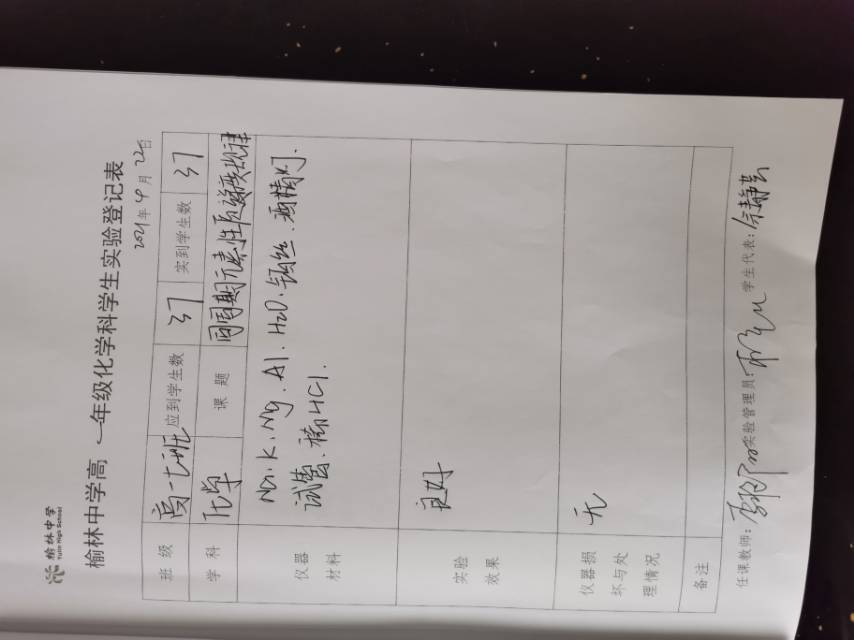 榆林中学
Yulin High School
榆林中学高一年级化学科学生实验登记表
2021年4月22日
班级 高一七班 应到学生数 37 实到学生数 37
学科 化学 课题 同周期元素性质递变规律
仪器材料 Na.K.Mg.Al.H2O.铜丝.酒精灯.
试管.稀HCl.
实验效果 良好
仪器损坏与处理情况 无
备注
任课教师: 实验管理员: 学生代表:余静芸